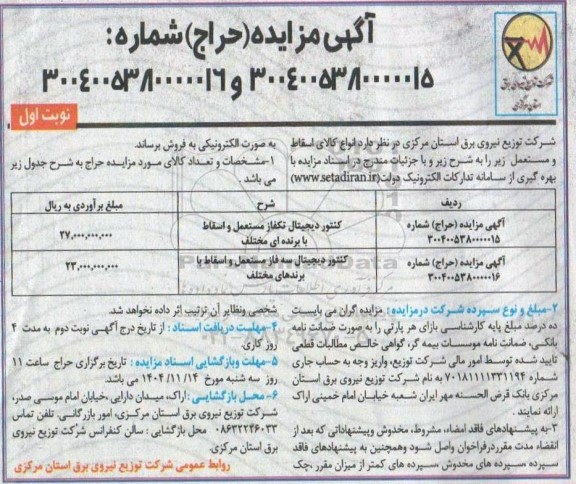 آگهی مزایده(حراج)شماره:
۳۰۰۴۰۰۵۳۸۰۰۰۰۰۱۵ و ۳۰۰۴۰۰۵۳۸۰۰۰۰۰۱۶
شرکت توزیع نیروی برق
استان مرکزی
نوبت اول
شرکت توزیع نیروی برق استان مرکزی در نظر دارد انواع کالای اسقاط
و مستعمل زیر را به شرح زیر و با جزئیات مندرج در اسناد مزایده با
بهره گیری از سامانه تدارکات الکترونیک دولت(www.setadiran.ir)
به صورت الکترونیکی به فروش برساند.
۱-مشخصات و تعداد کالای مورد مزایده حراج به شرح جدول زیر
می باشد .
ردیف شرح مبلغ برآوردی به ریال
آگهی مزایده (حراج) شماره ۳۰۰۴۰۰۵۳۸۰۰۰۰۰۱۵ کنتور دیجیتال تکفاز مستعمل و اسقاط با برنده ای مختلف ۲۷,۰۰۰,۰۰۰,۰۰۰
آگهی مزایده (حراج) شماره ۳۰۰۴۰۰۵۳۸۰۰۰۰۰۱۶ کنتور دیجیتال سه فاز مستعمل و اسقاط با برندهای مختلف ۲۳,۰۰۰,۰۰۰,۰۰۰
۲-مبلغ و نوع سپرده شرکت درمزایده: مزایده گران می بایست
ده درصد مبلغ پایه کارشناسی بازای هر پارتی را به صورت ضمانت نامه
بانکی، ضمانت نامه موسسات بیمه گر، گواهی خالص مطالبات قطعی
تایید شده توسط امور مالی شرکت توزیع، واریز وجه به حساب جاری
شماره ۷۰۱۸۱۱۱۱۳۳۱۱۹۴ به نام شرکت توزیع نیروی برق استان
مرکزی بانک قرض الحسنه مهر ایران شعبه خیابان امام خمینی اراک
ارائه نمایند .
۳-به پیشنهادهای فاقد امضاء، مشروط، مخدوش وپیشنهاداتی که بعد از
انقضاء مدت مقرردرفراخوان واصل شود وهمچنین به پیشنهادهای فاقد
سپرده، سپرده های مخدوش، سپرده های کمتر از میزان مقرر ،چک
شخصی ونظایر آن ترتیب اثر داده نخواهد شد.
۴-مهلت دریافت اسناد : از تاریخ درج آگهی نوبت دوم به مدت ۴
روز کاری.
۵-مهلت وبازگشایی اسناد مزایده : تاریخ برگزاری حراج ساعت ۱۱
روز سه شنبه مورخ ۱۴۰۴/۱۱/۱۴ می باشد.
۶- محل بازگشایی :اراک، میدان دارایی ،خیابان امام موسی صدر،
شرکت توزیع نیروی برق استان مرکزی، امور بازرگانی. تلفن تماس
۰۸۶۳۲۲۴۶۰۳۳ محل بازگشایی : سالن کنفرانس شرکت توزیع نیروی
برق استان مرکزی.
روابط عمومی شرکت توزیع نیروی برق استان مرکزی